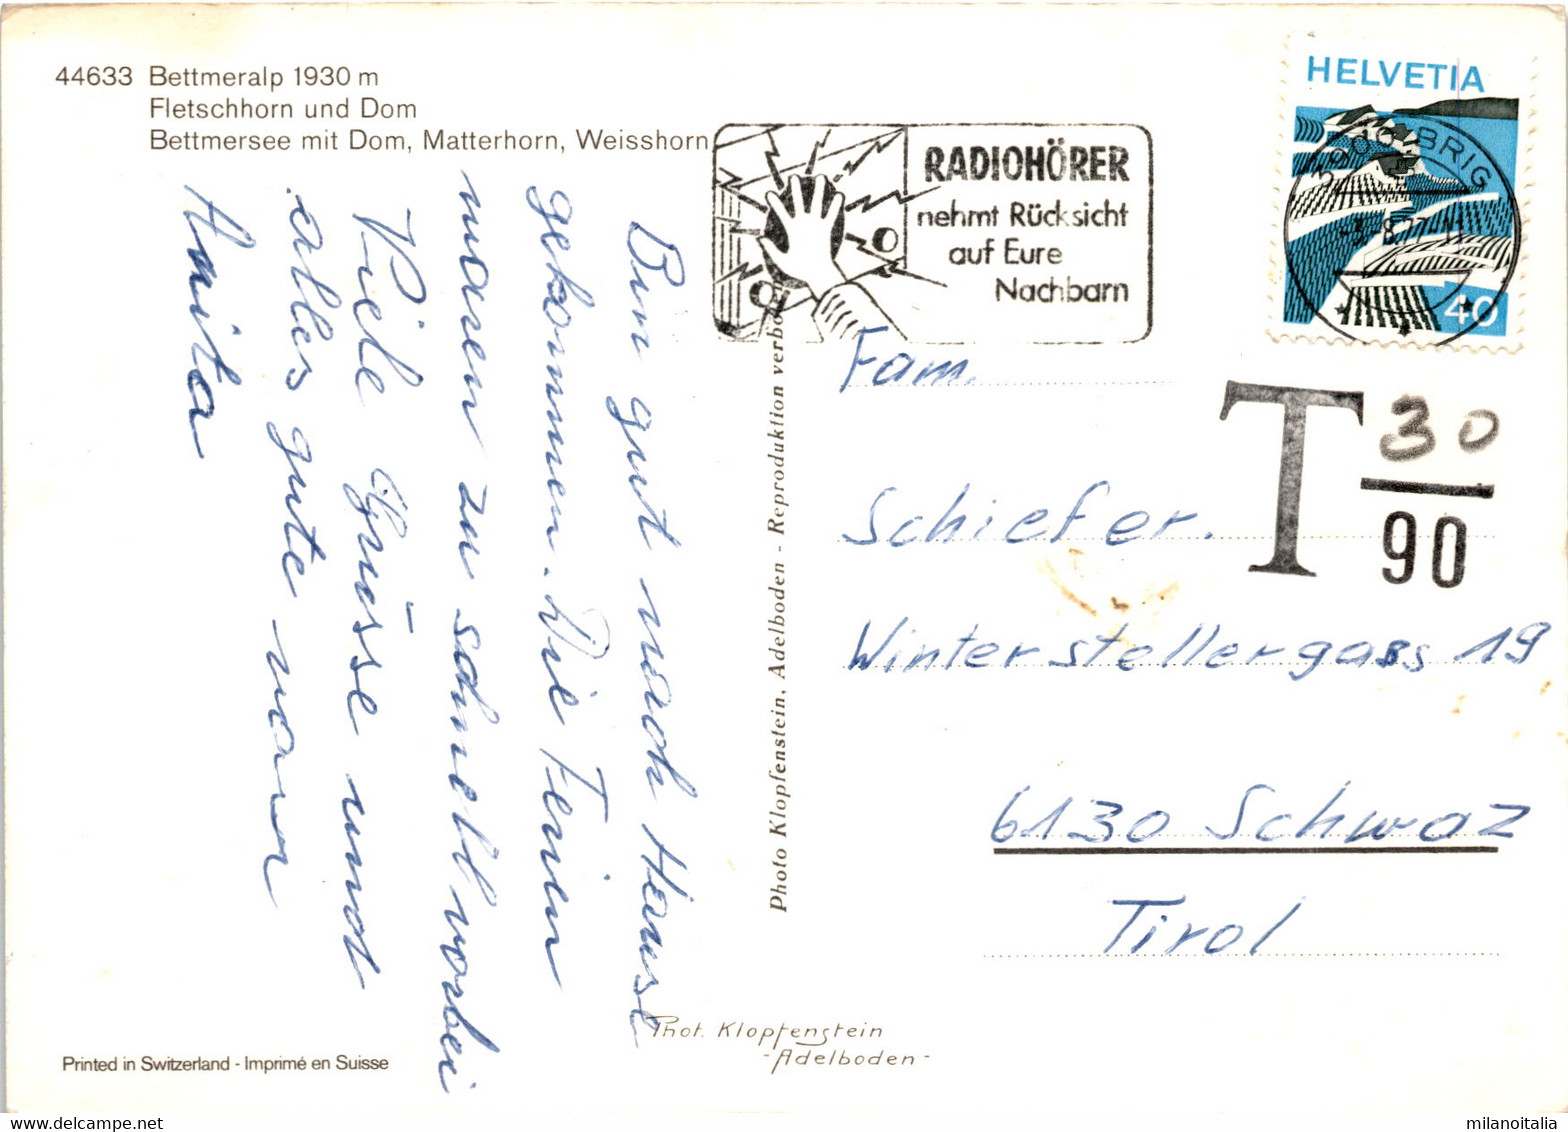 44633 Bettmeralp 1930 m
Fletschhorn und Dom
Bettmersee mit Dom, Matterhorn, Weisshorn
RADIOHÖRER
nehmt Rücksicht
auf Eure
Nachbarn
HELVETIA
40
BRIG
T 30
90
Bin gut nach Hause
gekommen. Die Ferien
waren zu schnell vorbei
Viele Grüsse und
alles gute von
Anita
Photo Klopfenstein, Adelboden - Reproduktion verbo
Fam.
Schiefer.
Winterstellergass 19
6130 Schwaz
Tirol
Phot. Klopfenstein
-Adelboden-
Printed in Switzerland - Imprimé en Suisse
milanoitalia